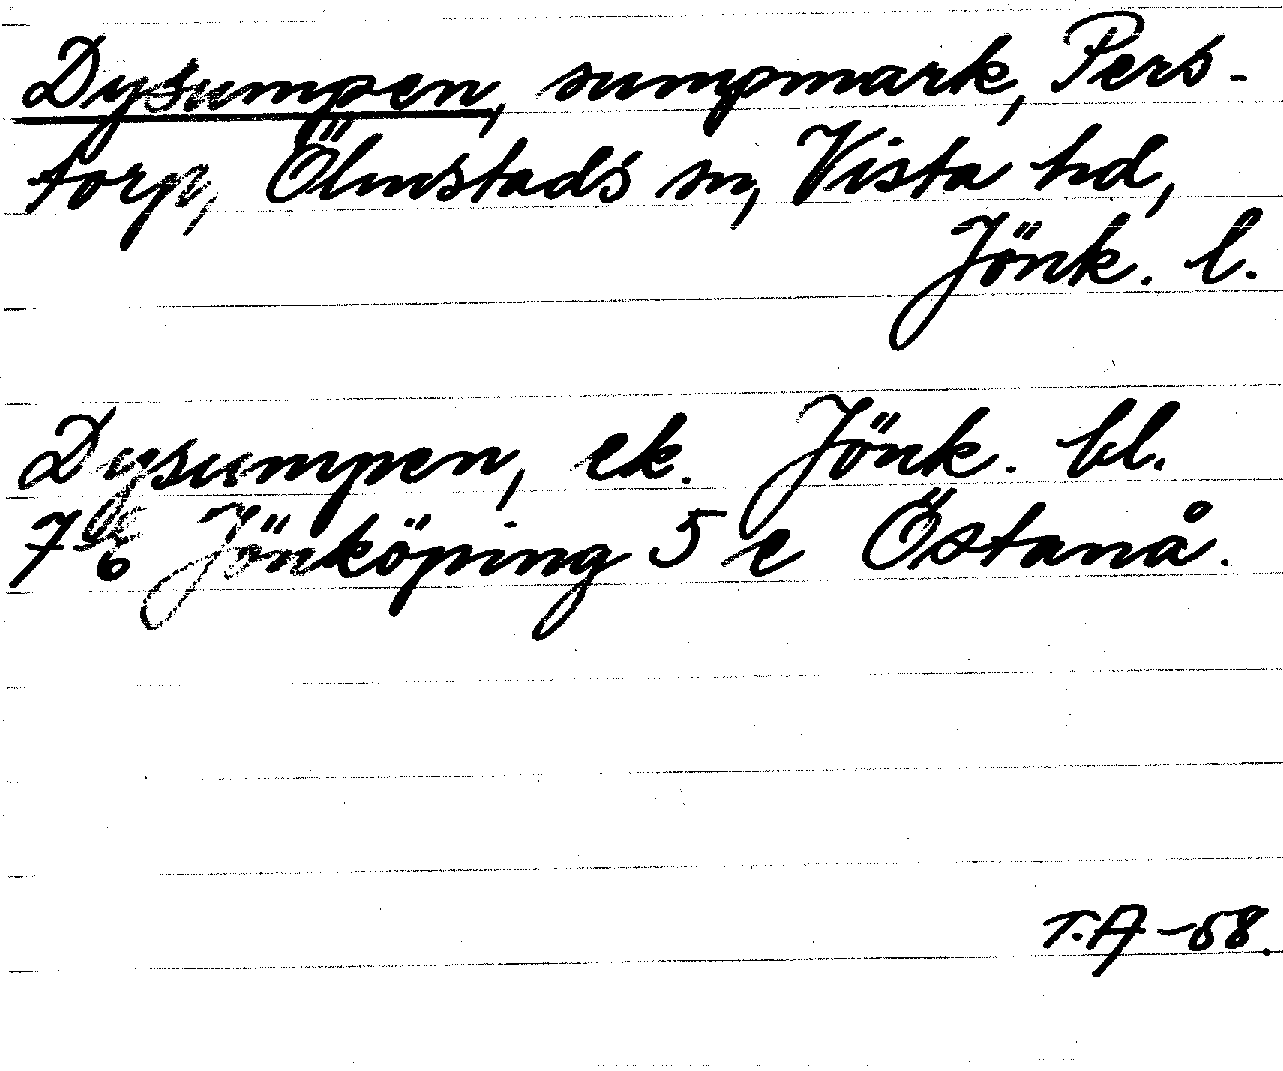 Dysumpen, sumpmark, Pers-
torp, Ölmstads sn, Vista hd,
Jönk. l.
Dysumpen, ek. Jönk. bl.
7 E Jönköping 5 e Östanå.
T.A -58.